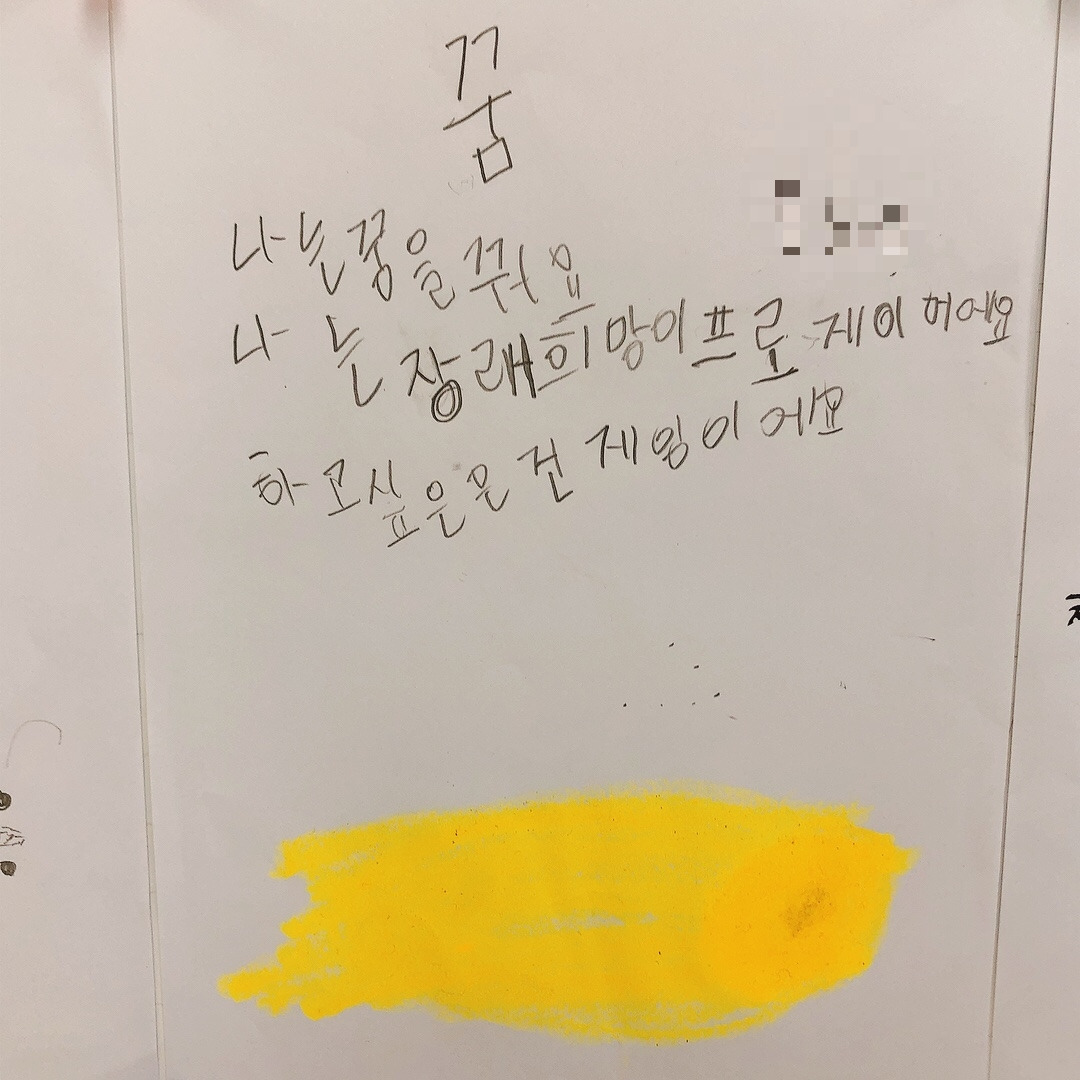 꿈
나는꿈을꿔요
나는장래희망이프로게이머에요
하고싶은은건게임이에요